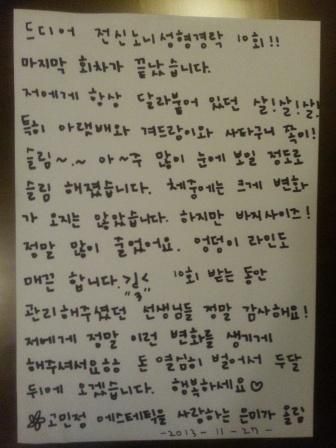 드디어 전신노니성형경락 10회!!
마지막 회차가 끝났습니다.
저에게 항상 달라붙어 있던 살!살!살!
특히 아랫배와 겨드랑이와 사타구니 쪽이!
슬림~.~ 아~주 많이 눈에 보일 정도로
슬림 해졌습니다. 체중에는 크게 변화
가 오지는 않았습니다. 하지만 바지사이즈!
정말 많이 줄었어요. 엉덩이 라인도
매끈 합니다. 10회 받는 동안
관리해주셨던 선생님들 정말 감사해요!
저에게 정말 이런 변화를 생기게
해주셔서요ㅎㅎ 돈 열심히 벌어서 두달
뒤에 오겠습니다. 행복하세요♡
고민정 에스테틱을 사랑하는 은미가 올림
-2013-11-27-